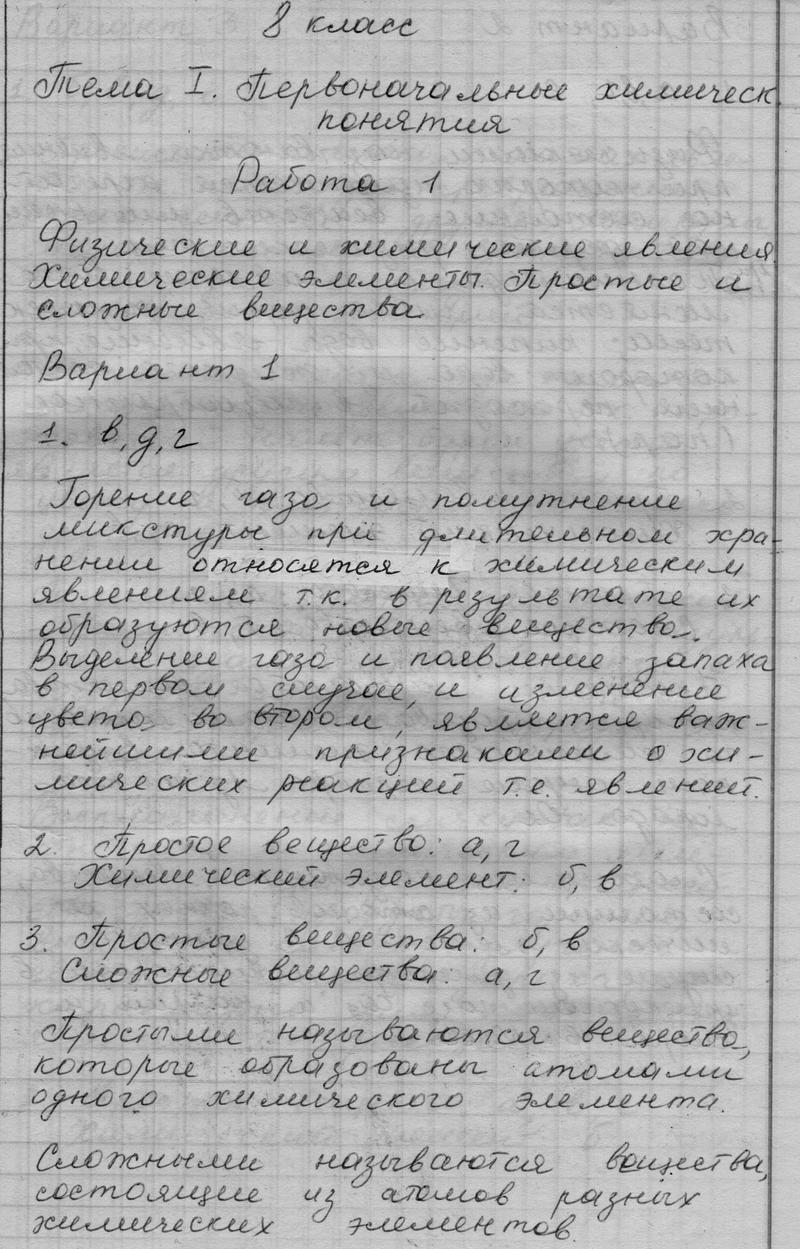 8 класс
Тема I. Первоначальные химическ
понятия
Работа 1
Физические и химические явления.
Химические элементы. Простые и
сложные вещества
Вариант 1
1. в, д, г
Горение газа и помутнение
микстуры при длительном хра-
нении относятся к химическим
явлениям т.к. в результате их
образуются новые вещества.
Выделение газа и появление запаха
в первом случае, и изменение
цвета во втором, является важ-
нейшими признаками о хи-
мических реакций т.е. явлений.
2. Простое вещество: а, г
Химический элемент: б, в
3. Простые вещества: б, в
Сложные вещества: а, г
Простыми называются вещества,
которые образованы атомами
одного химического элемента.
Сложными называются вещества,
состоящие из атомов разных
химических элементов.